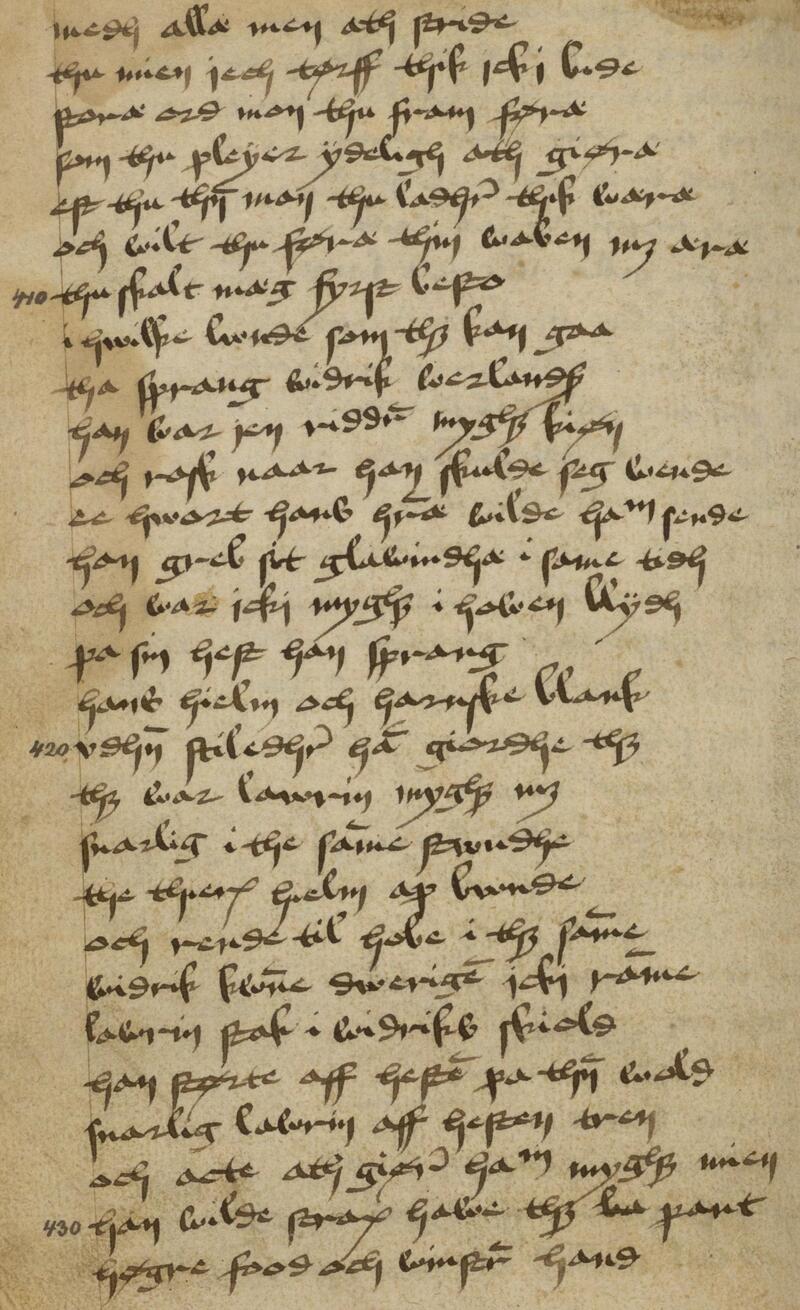 medh allæ men ath stride
thu mien jech tørff thik icki bide
storæ ord mon thu fram føræ
som thu pleyer ydeligh ath giøræ
est thu thn̄ man thu ladhr̄ thik wæræ
och wilt thu føræ thin waben mꝫ æræ
410 thu skalt mæg fyrst besto
i hwilke lwnde som thꝫ kan gaa
tha sprang widrik werlandsøn
han war jen riddr̄ myghꝫ kiøn
och rask naar han skulde seg wende
ee hwort hans hr̄æ wilde haᵐ sende
han greb sit glawindhæ i same tidh
och war icki myghꝫ i howen blydh
pa sin hest han sprang
hans hielm och harnske blank
420 vdhn̄ stiledhr̄ hā giordhe thꝫ
thꝫ war lawrin myghꝫ mꝫ
snarlig i the sām̄e stwndhe
the thieris hielm ap bwnde
och rende til hobe i thꝫ sam̄e
widrik kwn̄e dwerigē icki ram̄e
lawrin stak i widriks skiold
han størte aff hestē pa thn̄ wold
snarlig lawrin aff hesten tren
och acte ath giør̄ haᵐ myghꝫ mien
430 han wilde strax hawe thꝫ ba pant
høgre food och winstr̄ hand